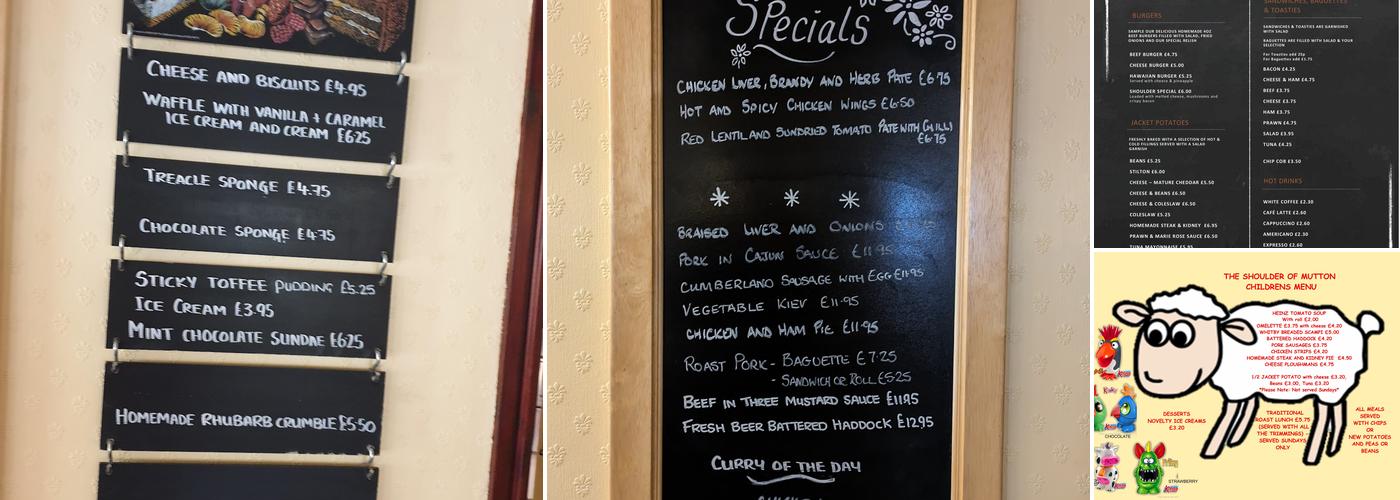 CHEESE AND BISCUITS £4.95
WAFFLE WITH VANILLA + CARAMEL
ICE CREAM AND CREAM £6.25
TREACLE SPONGE £4.75
CHOCOLATE SPONGE £4.75
STICKY TOFFEE PUDDING £5.25
ICE CREAM £3.95
MINT CHOCOLATE SUNDAE £6.25
HOMEMADE RHUBARB CRUMBLE £5.50
Specials
CHICKEN LIVER, BRANDY AND HERB PATE £6.75
HOT AND SPICY CHICKEN WINGS £6.50
RED LENTIL AND SUNDRIED TOMATO PATE WITH CHILLI
£6.75
BRAISED LIVER AND ONIONS
PORK IN CAJUN SAUCE £11.95
CUMBERLAND SAUSAGE WITH EGG £11.95
VEGETABLE KIEV £11.95
CHICKEN AND HAM PIE £11.95
ROAST PORK - BAGUETTE £7.25
- SANDWICH OR ROLL £5.25
BEEF IN THREE MUSTARD SAUCE £11.95
FRESH BEER BATTERED HADDOCK £12.95
CURRY OF THE DAY
BURGERS
SAMPLE OUR DELICIOUS HOMEMADE 4OZ
BEEF BURGERS FILLED WITH SALAD, FRIED
ONIONS AND OUR SPECIAL RELISH
BEEF BURGER £4.75
CHEESE BURGER £5.00
HAWAIIAN BURGER £5.25
Served with cheese & pineapple
SHOULDER SPECIAL £6.00
Loaded with melted cheese, mushrooms and
crispy bacon
JACKET POTATOES
FRESHLY BAKED WITH A SELECTION OF HOT &
COLD FILLINGS SERVED WITH A SALAD
GARNISH
BEANS £5.25
STILTON £6.00
CHEESE – MATURE CHEDDAR £5.50
CHEESE & BEANS £6.50
CHEESE & COLESLAW £6.50
COLESLAW £5.25
HOMEMADE STEAK & KIDNEY £6.95
PRAWN & MARIE ROSE SAUCE £6.50
TUNA MAYONNAISE £5.95
SANDWICHES, BAGUETTES
& TOASTIES
SANDWICHES & TOASTIES ARE GARNISHED
WITH SALAD
BAGUETTES ARE FILLED WITH SALAD & YOUR
SELECTION
For Toasties add 25p
For Baguettes add £1.75
BACON £4.25
CHEESE & HAM £4.75
BEEF £3.75
CHEESE £3.75
HAM £3.75
PRAWN £4.75
SALAD £3.95
TUNA £4.25
CHIP COB £3.50
HOT DRINKS
WHITE COFFEE £2.30
CAFÉ LATTE £2.60
CAPPUCCINO £2.60
AMERICANO £2.30
EXPRESSO £2.60
THE SHOULDER OF MUTTON
CHILDRENS MENU
HEINZ TOMATO SOUP
With roll £2.00
OMELETTE £3.75 with cheese £4.20
WHITBY BREADED SCAMPI £5.00
BATTERED HADDOCK £4.20
PORK SAUSAGES £3.75
CHICKEN STRIPS £4.20
HOMEMADE STEAK AND KIDNEY PIE £4.50
CHEESE PLOUGHMANS £4.75
1/2 JACKET POTATO with cheese £3.20,
Beans £3.00, Tuna £3.20
*Please Note: Not served Sundays*
DESSERTS
NOVELTY ICE CREAMS
£3.20
TRADITIONAL
ROAST LUNCH £5.75
(SERVED WITH ALL
THE TRIMMINGS) -
SERVED SUNDAYS
ONLY
ALL MEALS
SERVED
WITH CHIPS
OR
NEW POTATOES
AND PEAS OR
BEANS
CHOCOLATE
STRAWBERRY